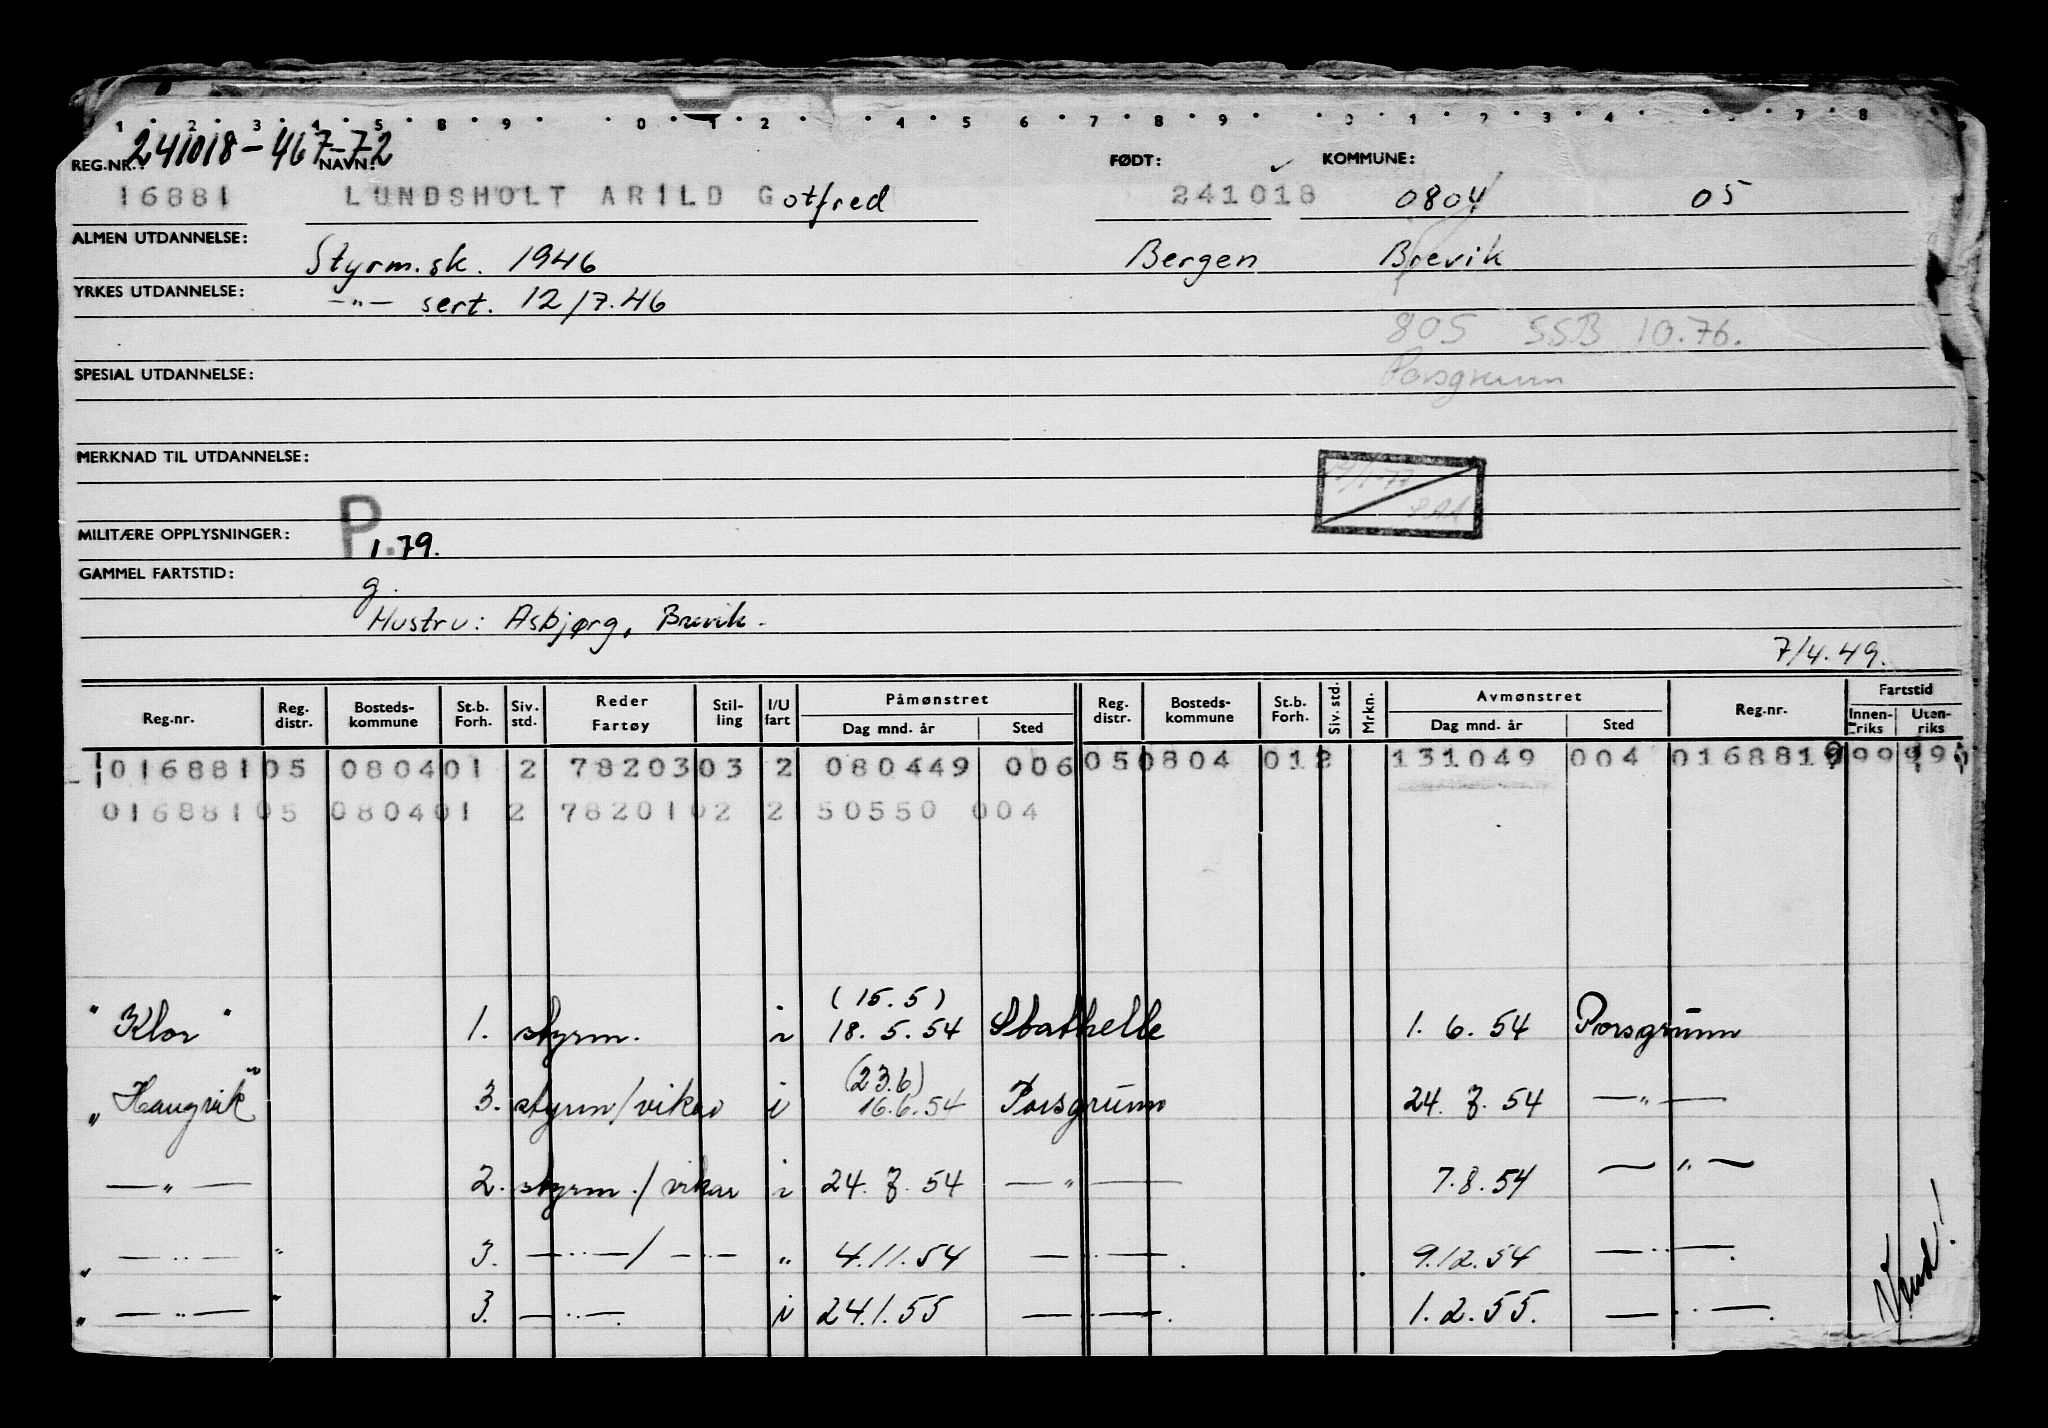 1 2 3 4 5 8 9 0 1 2 4 5 6 7 8 9 0 1 2 3 4 7 8
241018-467-72
REG.NR.: NAVN: FØDT: KOMMUNE:
16881 LUNDSHOLT ARILD Gotfred 241018 0804 05
ALMEN UTDANNELSE: Styrm.sk. 1946 Bergen Brevik
YRKES UTDANNELSE: —"— sert. 12/7.46
805 SSB 10.76.
SPESIAL UTDANNELSE: Porsgrunn
MERKNAD TIL UTDANNELSE:
P
MILITÆRE OPPLYSNINGER: 1.79.
GAMMEL FARTSTID: g.
Hustru: Asbjørg, Brevik.
7/4.49.
Reg.nr. Reg. distr. Bosteds- kommune St.b. Forh. Siv. std. Reder Fartøy Stil- ling I/U fart Påmønstret Dag mnd. år Sted Reg. distr. Bosteds- kommune St.b. Forh. Siv. std. Mrkn. Avmønstret Dag mnd. år Sted Reg.nr. Fartstid Innen- riks Uten- riks
016881 05 0804 01 2 78203 03 2 080449 006 05 0804 012 131049 004 016881
016881 05 0804 01 2 78201 02 2 50550 004
(15.5)
"Klor" 1. styrm. i 18.5.54 Stathelle 1.6.54 Porsgrunn
(23.6)
"Haugvik" 3. styrm/vikar i 16.6.54 Porsgrunn 24.7.54 —"—
—"— 2. styrm./vikar i 24.7.54 —"— 7.8.54 —"—
" —"— " 3. —"—/—"— " 4.11.54 —"—. 9.12.54 —"—.
" —"— " 3. —"—. i 24.1.55 —"—. 1.2.55. —"—.
Vend!